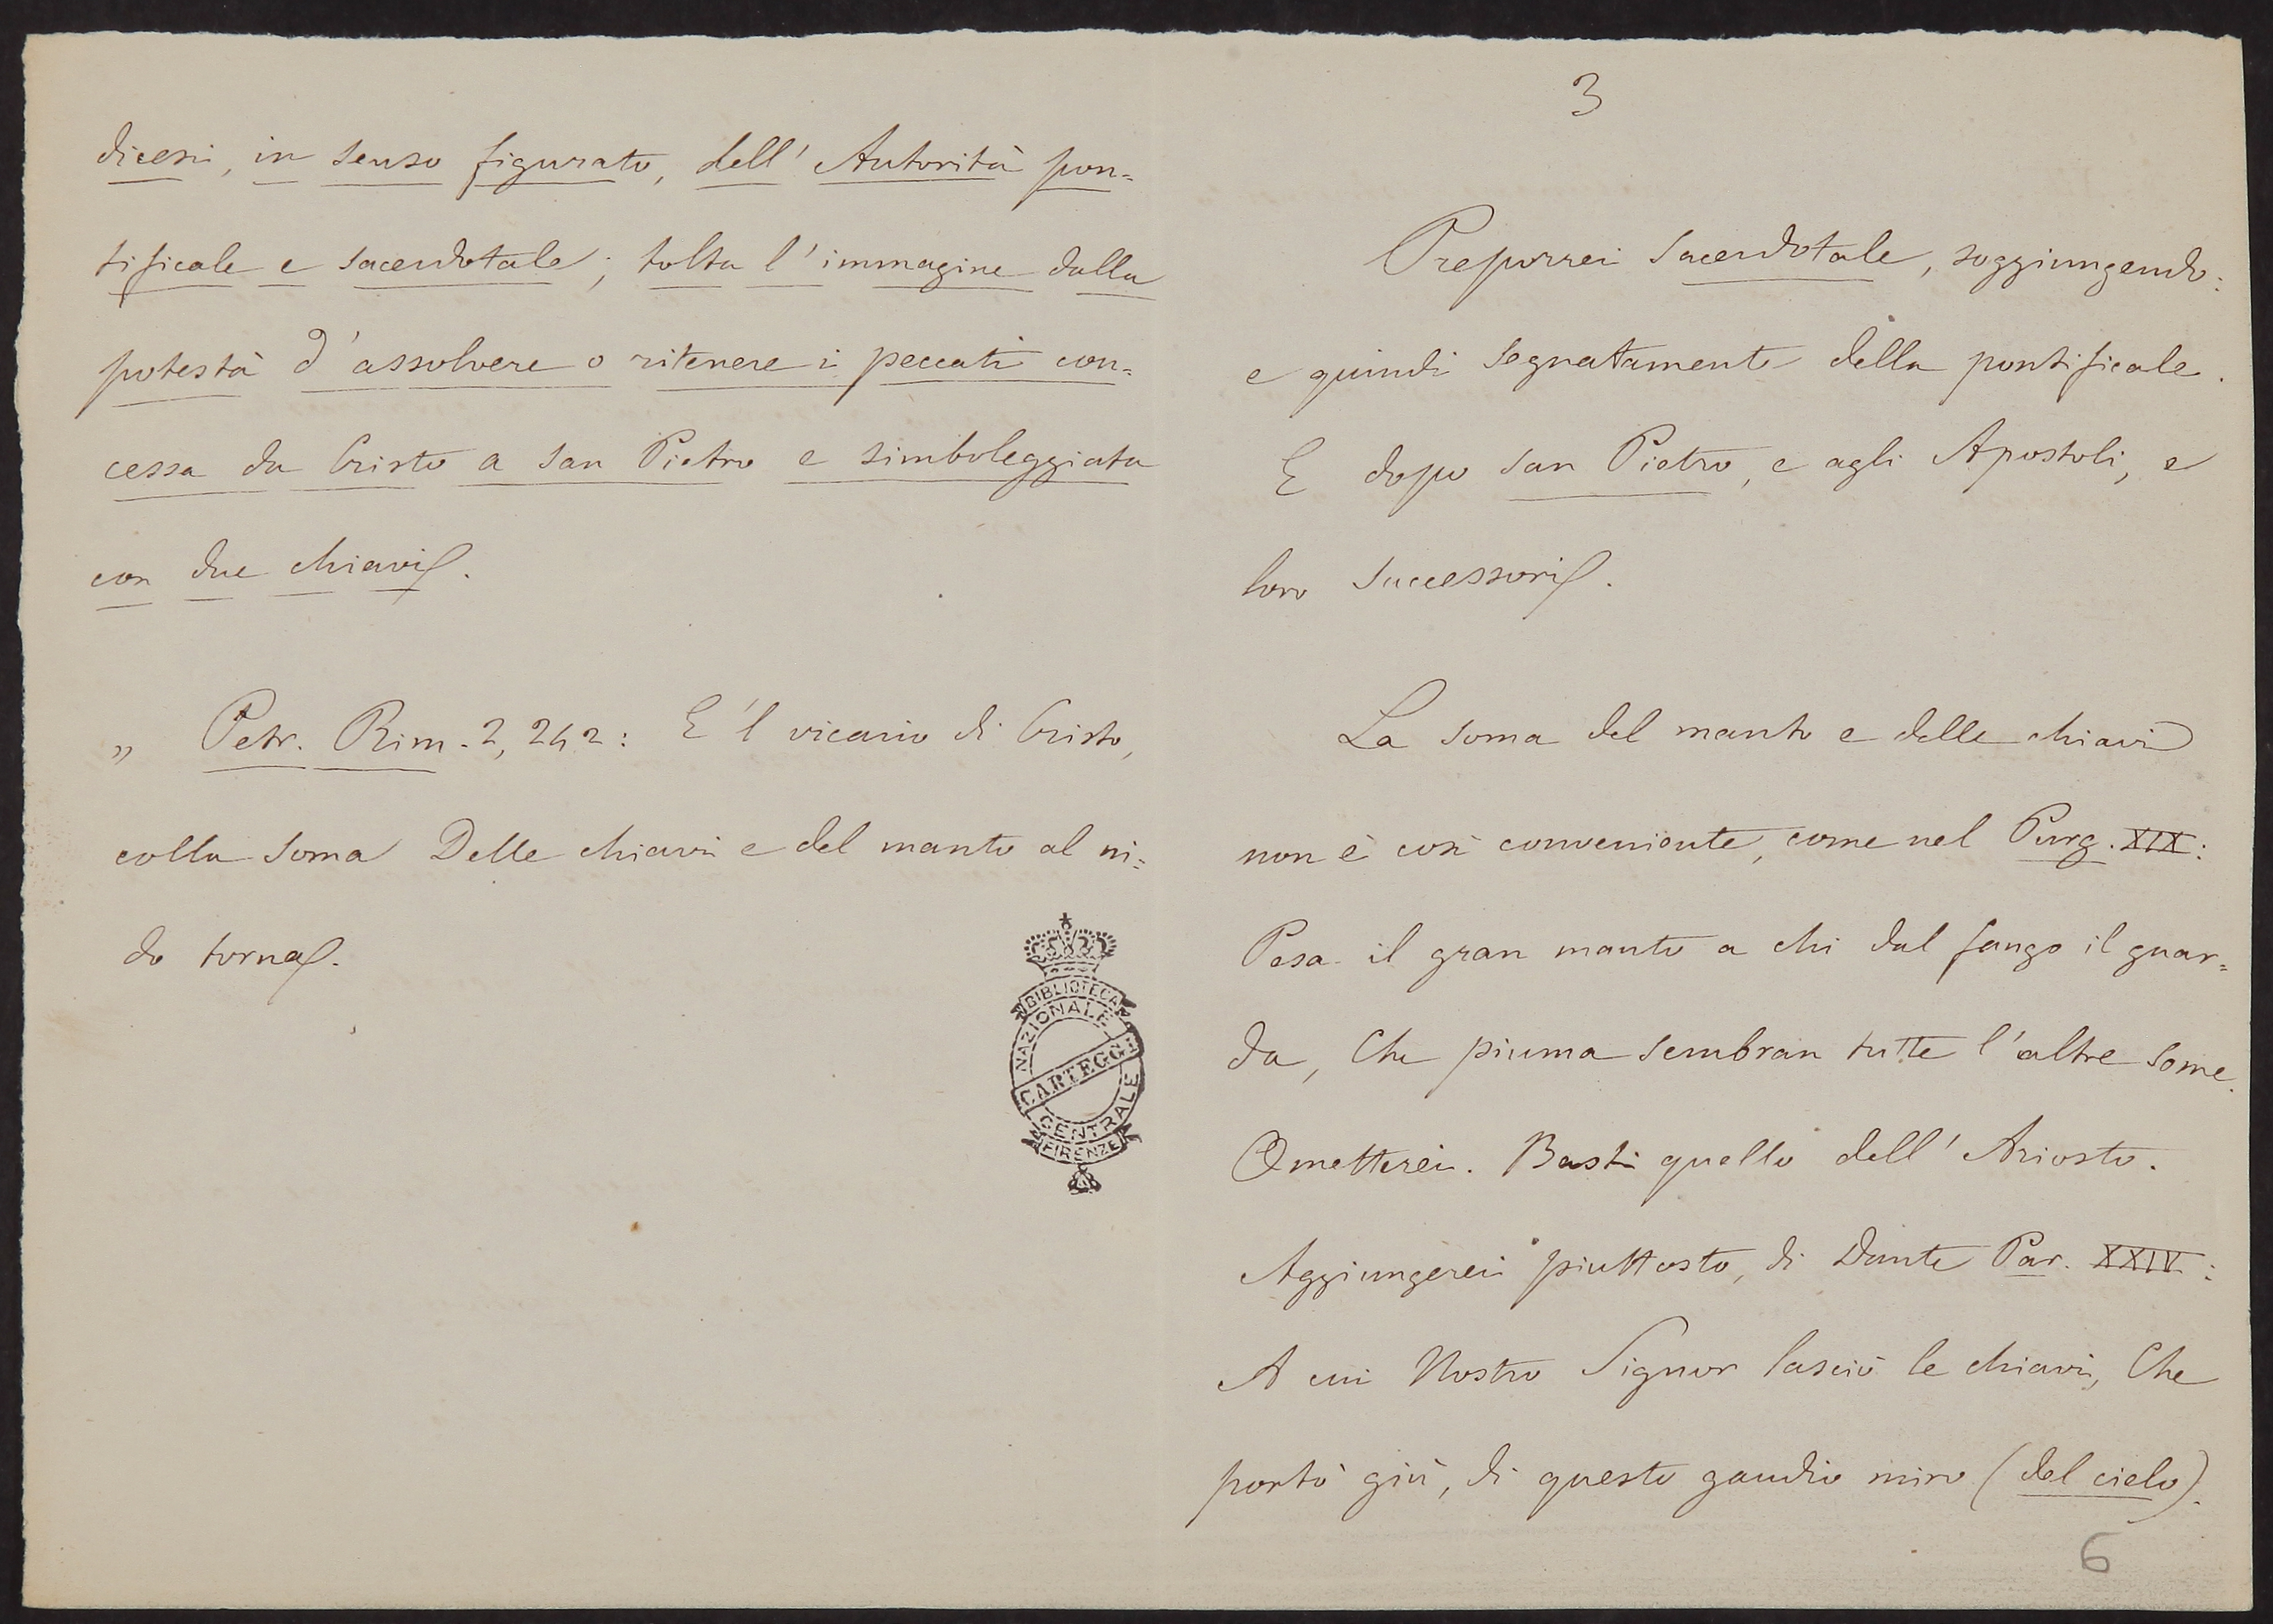 dicesi, in senso figurato, dell'Autorità pon=
tificale e sacerdotale; tolta l'immagine dalla
potestà d'assolvere o ritenere i peccati con=
cessa da Cristo a San Pietro e simboleggiata
con due chiavi.
" Petr. Rim. 2, 242: E 'l vicario di Cristo,
colla soma Delle chiavi e del manto al ni=
do torna.
BIBLIOTECA
NAZIONALE
CARTEGGI
CENTRALE
FIRENZE
3
Preporrei Sacerdotale, soggiungendo:
e quindi segnatamente della pontificale.
E dopo San Pietro, e agli Apostoli, e
loro Successori.
La soma del manto e delle chiavi
non è così conveniente, come nel Purg. XIX:
Pesa il gran manto a chi dal fango il guar=
da, Che piuma sembran tutte l'altre some.
Ometterei. Basti quello dell'Ariosto.
Aggiungerei piuttosto, di Dante Par. XXIV:
A cui Nostro Signor lasciò le chiavi, Che
portò giù, di questo gaudio miro (del cielo).
6